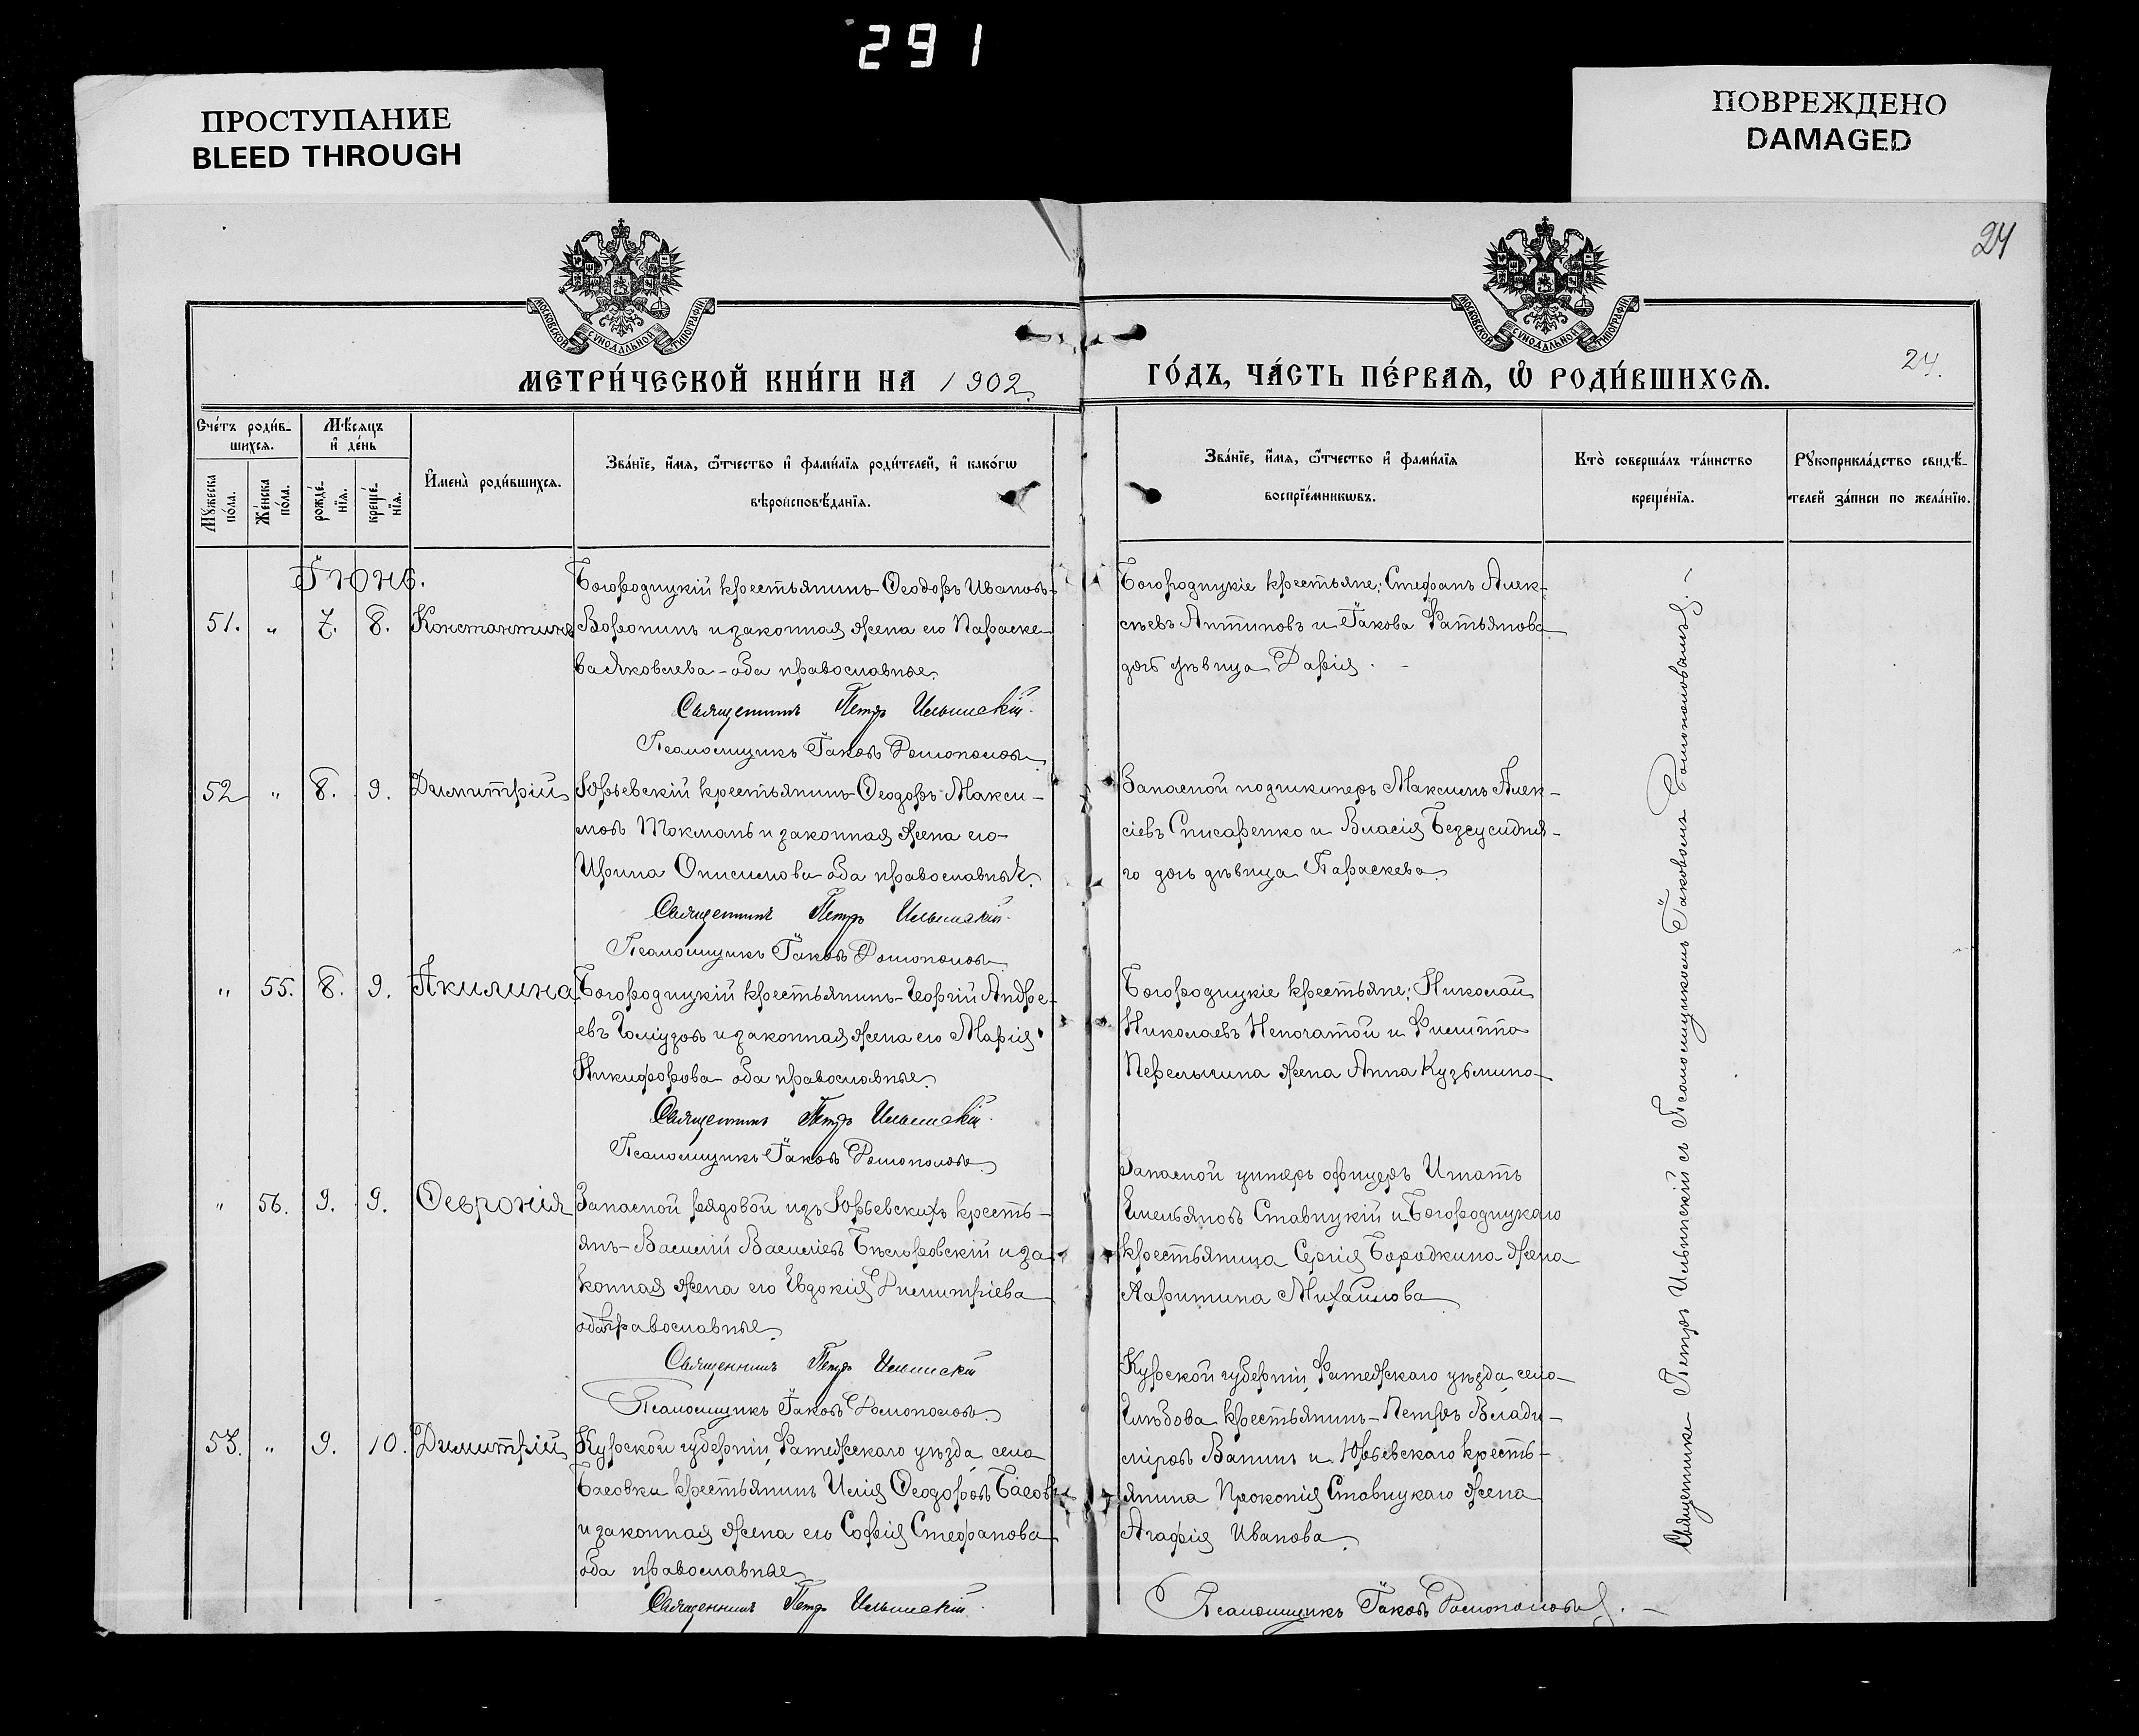 291
ПРОСТУПАНИЕ
BLEED THROUGH
ПОВРЕЖДЕНО
DAMAGED
24
МОСКОВСКОЙ СУНОДАЛЬНОЙ ТИПОГРАФІИ
МОСКОВСКОЙ СУНОДАЛЬНОЙ ТИПОГРАФІИ
МЕТРИ́ЧЕСКОЙ КНИ́ГИ НА 1902.
ГО́ДЪ, ЧА́СТЬ ПЕ́РВАѦ, Ѽ РОДИ́ВШИХСѦ.
24.
Сче́тъ роди́в-
шихсѧ.
Мѣ́сѧцъ
и҆ де́нь
Мꙋ́жеска
по́ла.
Же́нска
по́ла.
рожде́-
нїѧ.
креще́-
нїѧ.
И҆мена̀ роди́вшихсѧ.
Зва́нїе, и҆́мѧ, ѻ҆́тчество и҆ фами́лїѧ роди́телей, и҆ како́гѡ
вѣроисповѣ́данїѧ.
Зва́нїе, и҆́мѧ, ѻ҆́тчество и҆ фами́лїѧ
воспрїе́мникѡвъ.
Кто̀ соверша́лъ та́инство
креще́нїѧ.
Рꙋкоприкла́дство свидѣ́-
телей за́писи по жела́нїю.
Іюнь.
51. " 7. 8. Константинъ
Богородицкій крестьянинъ Ѳеодоръ Ивановъ
Воронинъ и законная жена его Параске-
ва Яковлева - оба православные.
Священникъ Петръ Ильинскій.
Псаломщикъ Іаковъ Ромополовъ
Богородицкіе крестьяне: Стефанъ Алек-
сѣевъ Антиповъ и Іакова Фатьянова
дочь дѣвица Дарія.
52 " 8. 9. Димитрій
Юрьевскій крестьянинъ Ѳеодоръ Макси-
мовъ Токмань и законная жена его
Ирина Онисимова оба православные.
Священникъ Петръ Ильинскій.
Псаломщикъ Іаковъ Ромополовъ
Запасной подшкиперъ Максимъ Алек-
сіевъ Списаренко и Власія Безсидня-
го дочь дѣвица Параскева.
" 55. 8. 9. Акилина
Богородицкій крестьянинъ Георгій Андре-
евъ и законная жена его Марія
Никифорова оба православные.
Священникъ Петръ Ильинскій.
Псаломщикъ Іаковъ Ромополовъ
Богородицкіе крестьяне: Николай
Николаевъ Непочатой и Филиппа
Перелыгина жена Анна Кузьмина
" 56. 9. 9. Ѳеvронія
Запасной рядовой изъ Юрьевскихъ кресть-
янъ Василій Васильевъ Бѣлоровскій и за-
конная жена его Евдокія Димитріева
оба православные.
Священникъ Петръ Ильинскій
Псаломщикъ Іаковъ Ромополовъ
Запасной унтеръ офицеръ Игнатъ
Емельяновъ Ставицкій и Богородицкаго
крестьянина Сергія Бородкина жена
Михайлова
53. " 9. 10. Димитрій
Курской губерніи, Фатежскаго уѣзда, села
Басовки крестьянинъ Илія Ѳеодоровъ Басовъ
и законная жена его Софія Стефанова
оба православные
Священникъ Петръ Ильинскій.
Курской губерніи, Фатежскаго уѣзда, села
Глѣбова крестьянинъ Петръ Влади-
міровъ Ванинъ и Юрьевскаго кресть-
янина Прокопія Ставицкаго жена
Агафія Иванова.
Псаломщикъ Іаковъ Ромополовъ.
Священникъ Петръ Ильинскій съ Псаломщикомъ Іаковомъ Ромополовымъ.